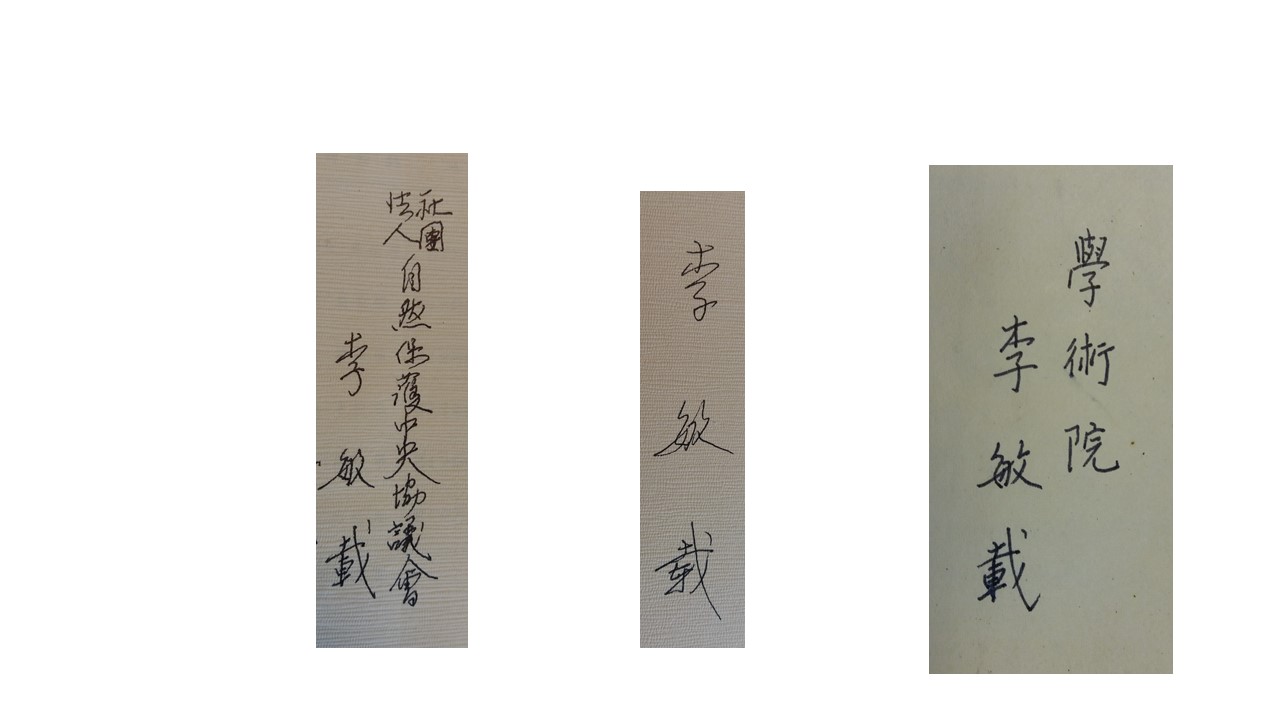 社團
法人
自然保護中央協議會
李敏載
李敏載
學術院
李敏載